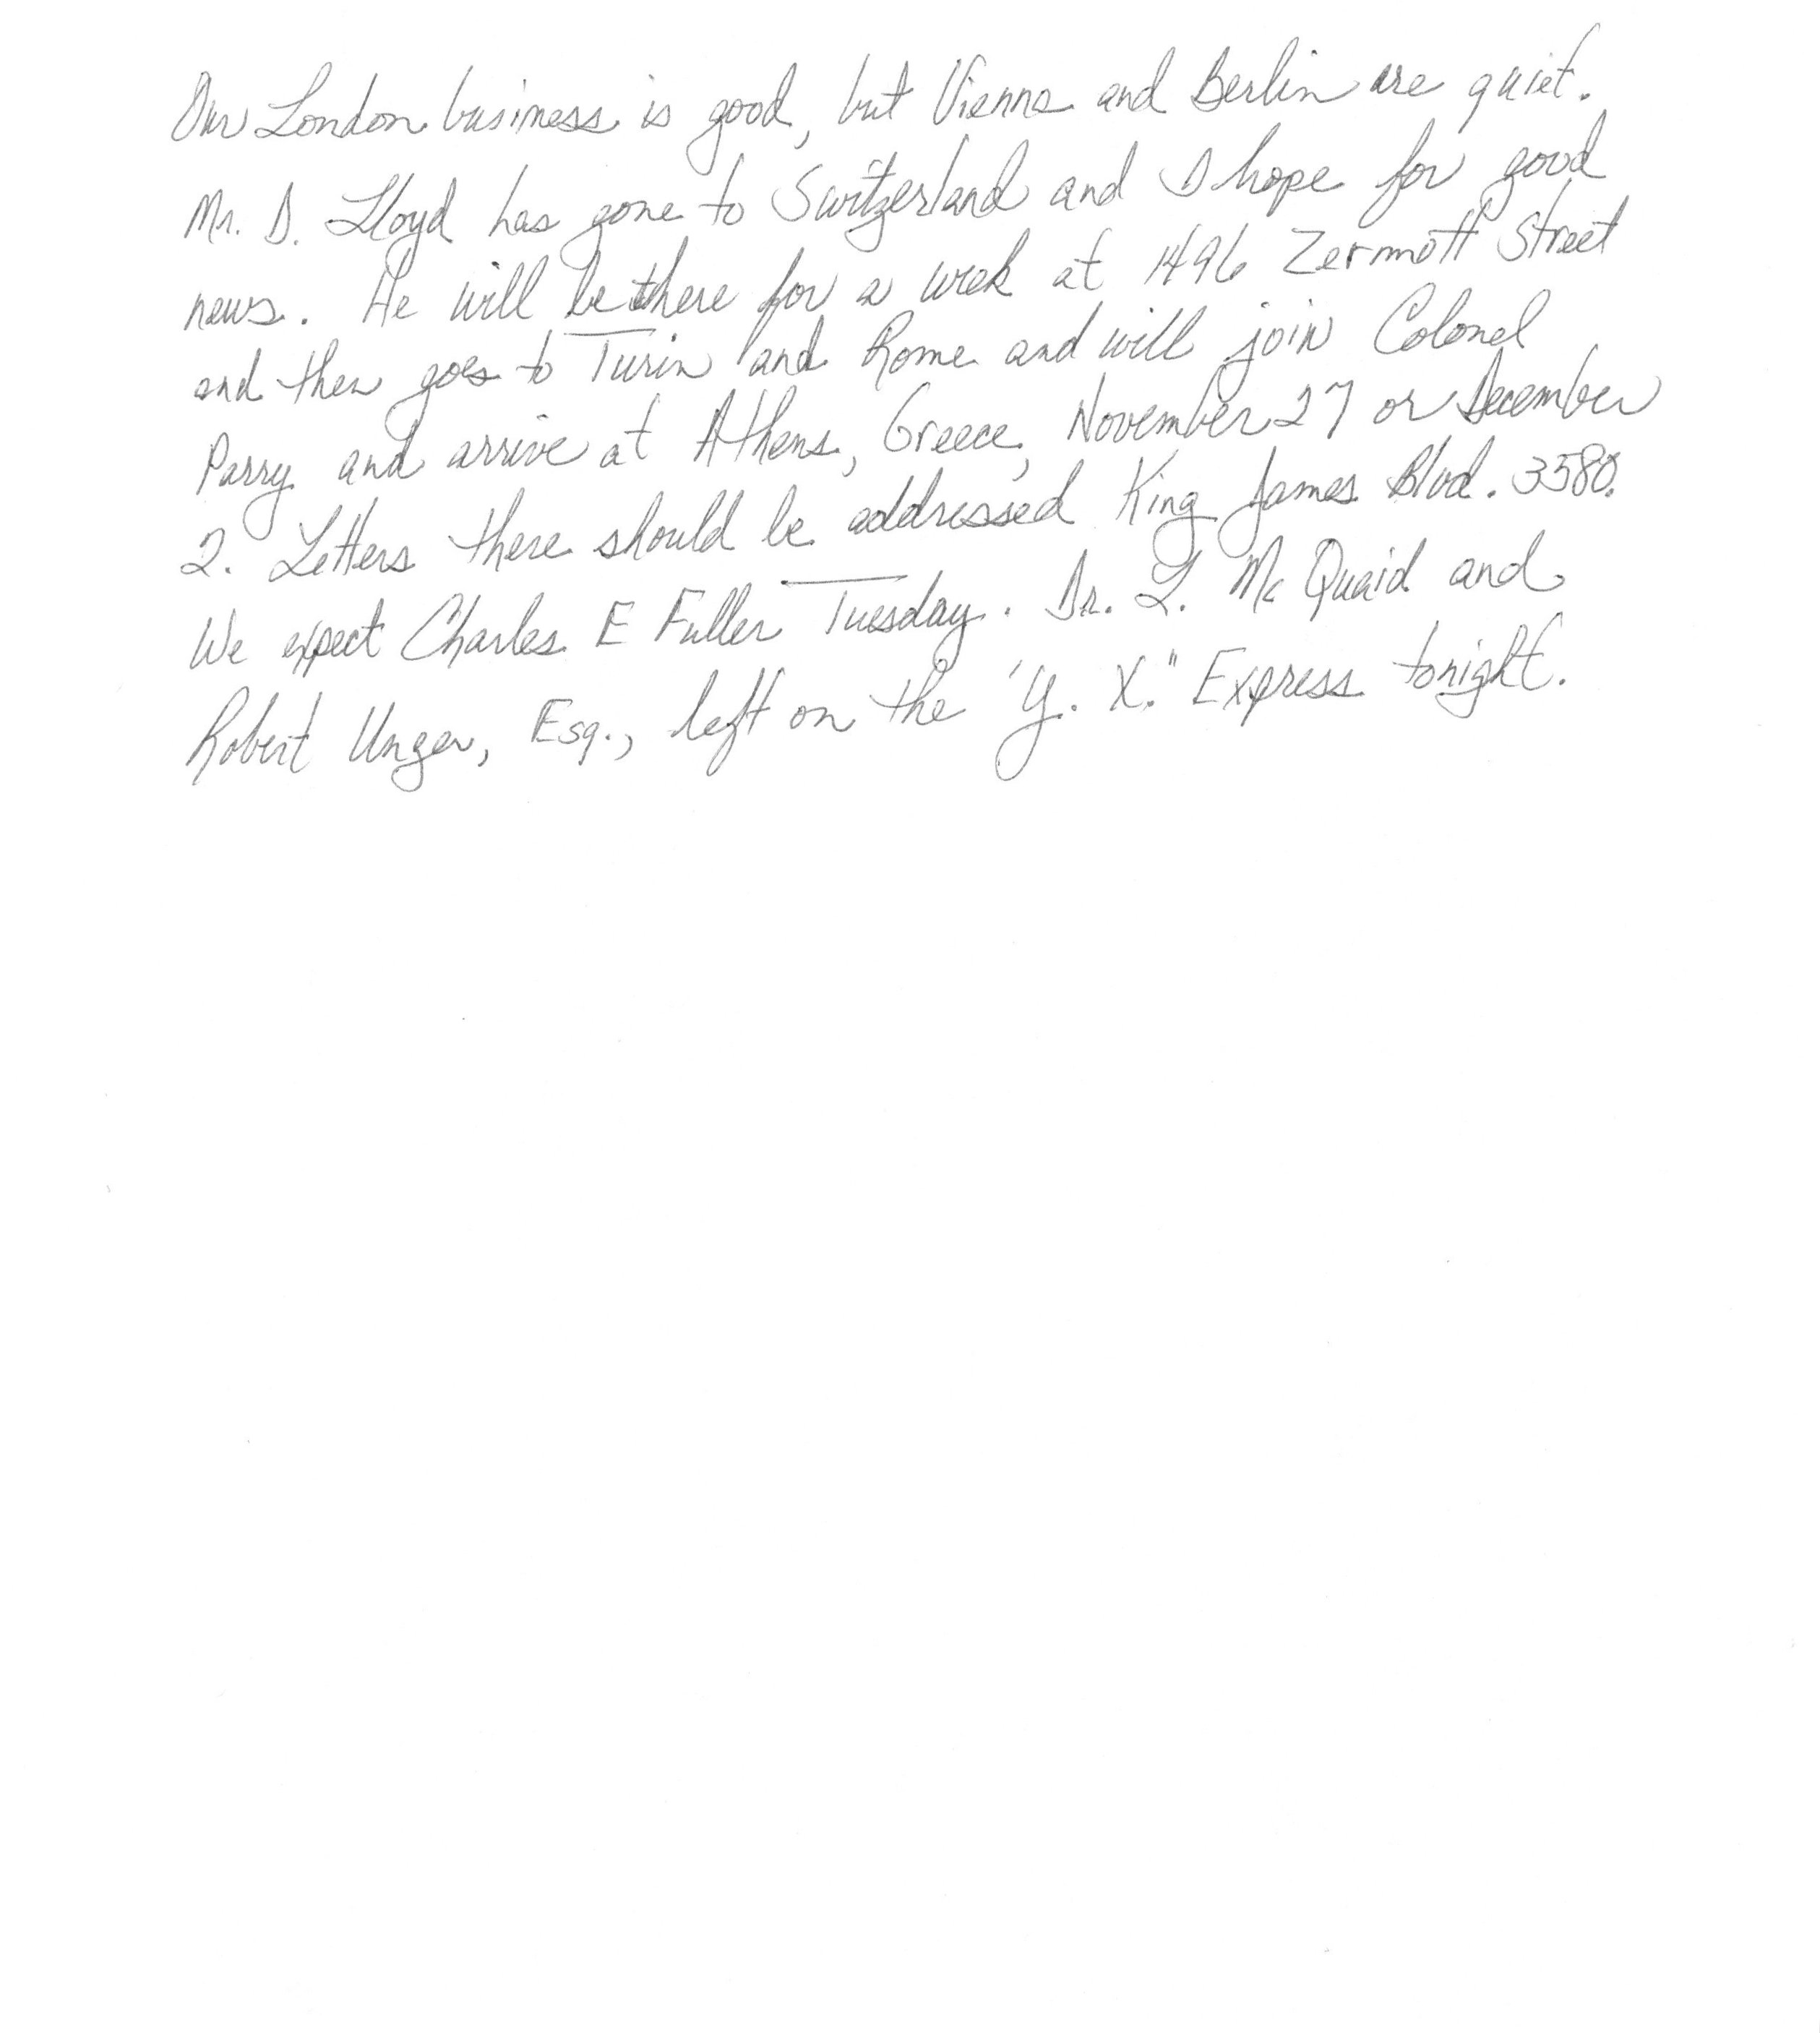 Our London business is good, but Vienna and Berlin are quiet.
Mr. D. Lloyd has gone to Switzerland and I hope for good
news. He will be there for a week at 1496 Zermott Street
and then goes to Turin and Rome and will join Colonel
Parry and arrive at Athens, Greece, November 27 or December
2. Letters there should be addressed King James Blvd. 3580.
We expect Charles E Fuller Tuesday. Dr. L. Mc Quaid and
Robert Unger, Esq., left on the "Y. X." Express tonight.